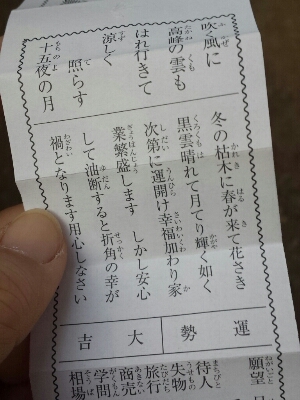 吹く風に
高峰の雲も
はれ行きて
涼しく
照らす
十五夜の月
冬の枯木に春が来て花さき
黒雲晴れて月てり輝く如く
次第に運開け幸福加わり家
業繁盛します しかし安心
して油断すると折角の幸が
禍となります用心しなさい
運勢
大吉
願望
待人
失物
旅行
商売
学問
相場